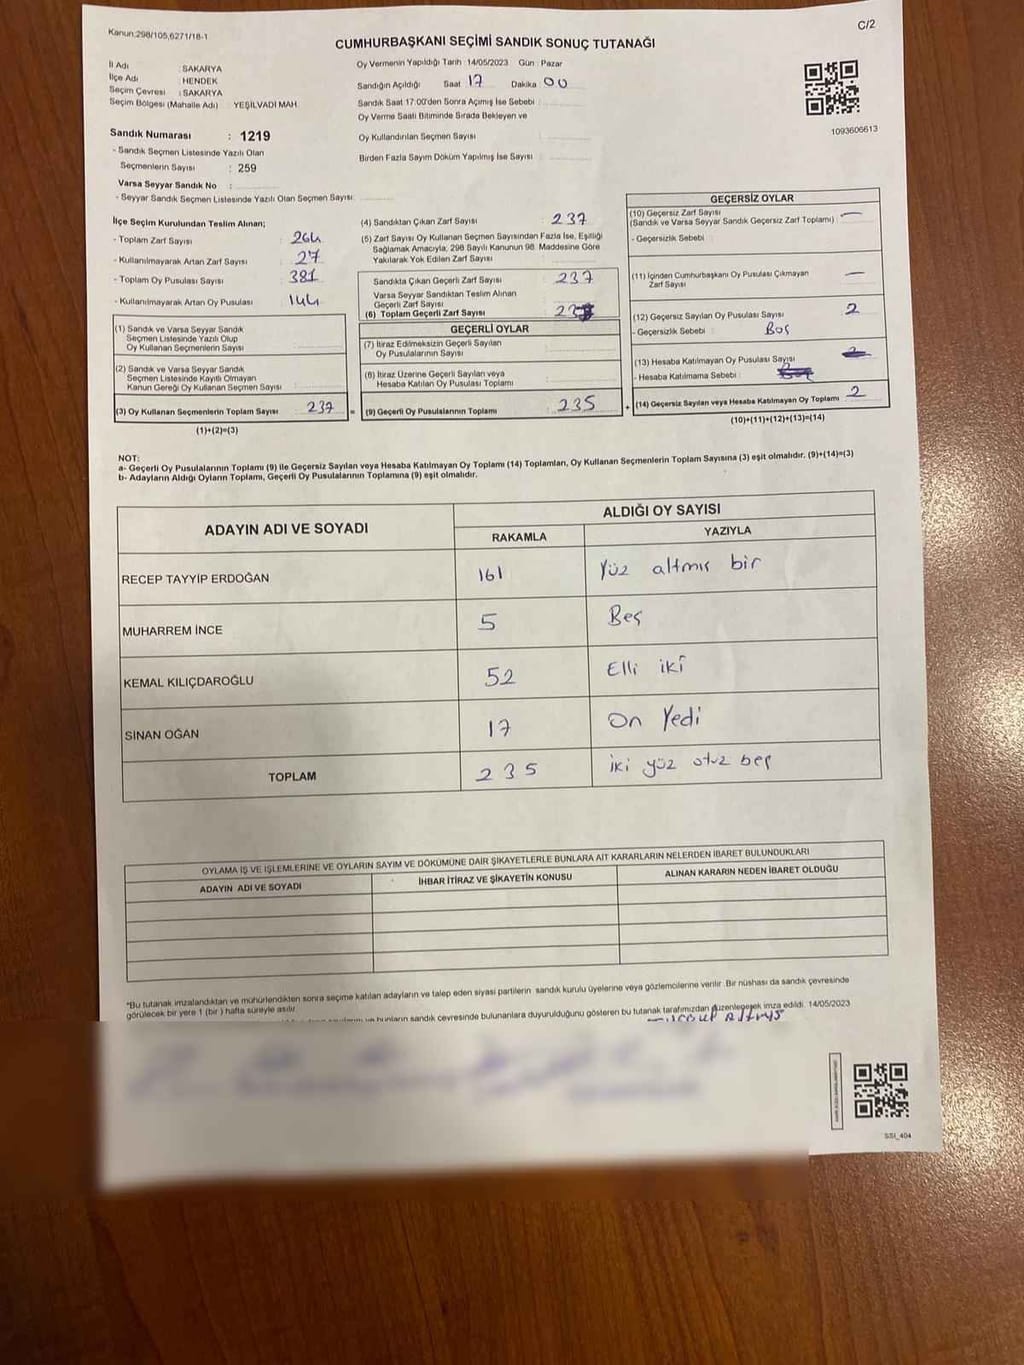 Kanun:298/105,6271/18-1
C/2
CUMHURBAŞKANI SEÇİMİ SANDIK SONUÇ TUTANAĞI
İl Adı : SAKARYA
İlçe Adı : HENDEK
Seçim Çevresi : SAKARYA
Seçim Bölgesi (Mahalle Adı) YEŞİLVADİ MAH
Sandık Numarası : 1219
- Sandık Seçmen Listesinde Yazılı Olan
Seçmenlerin Sayısı : 259
Varsa Seyyar Sandık No :
- Seyyar Sandık Seçmen Listesinde Yazılı Olan Seçmen Sayısı:
Oy Vermenin Yapıldığı Tarih :14/05/2023 Gün : Pazar
Sandığın Açıldığı Saat 17 Dakika 00
Sandık Saat 17:00'den Sonra Açımış İse Sebebi :
Oy Verme Saati Bitiminde Sırada Bekleyen ve
Oy Kullandırılan Seçmen Sayısı :
Birden Fazla Sayım Döküm Yapılmış İse Sayısı :
1093606613
İlçe Seçim Kurulundan Teslim Alınan;
- Toplam Zarf Sayısı : 264
- Kullanılmayarak Artan Zarf Sayısı : 27
- Toplam Oy Pusulası Sayısı : 381
- Kullanılmayarak Artan Oy Pusulası : 144
(1) Sandık ve Varsa Seyyar Sandık
Seçmen Listesinde Yazılı Olup
Oy Kullanan Seçmenlerin Sayısı :
(2) Sandık ve Varsa Seyyar Sandık
Seçmen Listesinde Kayıtlı Olmayan
Kanun Gereği Oy Kullanan Seçmen Sayısı :
(3) Oy Kullanan Seçmenlerin Toplam Sayısı : 237 =
(1)+(2)=(3)
(4) Sandıktan Çıkan Zarf Sayısı : 237
(5) Zarf Sayısı Oy Kullanan Seçmen Sayısından Fazla İse, Eşitliği
Sağlamak Amacıyla, 298 Sayılı Kanunun 98. Maddesine Göre
Yakılarak Yok Edilen Zarf Sayısı :
Sandıkta Çıkan Geçerli Zarf Sayısı : 237
Varsa Seyyar Sandıktan Teslim Alınan
Geçerli Zarf Sayısı :
(6) Toplam Geçerli Zarf Sayısı :
GEÇERLİ OYLAR
(7) İtiraz Edilmeksizin Geçerli Sayılan
Oy Pusulalarının Sayısı :
(8) İtiraz Üzerine Geçerli Sayılan veya
Hesaba Katılan Oy Pusulası Toplamı :
(9) Geçerli Oy Pusulalarının Toplamı : 235 +
GEÇERSİZ OYLAR
(10) Geçersiz Zarf Sayısı : —
(Sandık ve Varsa Seyyar Sandık Geçersiz Zarf Toplamı)
- Geçersizlik Sebebi :
(11) İçinden Cumhurbaşkanı Oy Pusulası Çıkmayan —
Zarf Sayısı :
(12) Geçersiz Sayılan Oy Pusulası Sayısı : 2
- Geçersizlik Sebebi : Boş
(13) Hesaba Katılmayan Oy Pusulası Sayısı :
- Hesaba Katılmama Sebebi :
(14) Geçersiz Sayılan veya Hesaba Katılmayan Oy Toplamı : 2
(10)+(11)+(12)+(13)=(14)
NOT:
a- Geçerli Oy Pusulalarının Toplamı (9) ile Geçersiz Sayılan veya Hesaba Katılmayan Oy Toplamı (14) Toplamları, Oy Kullanan Seçmenlerin Toplam Sayısına (3) eşit olmalıdır. (9)+(14)=(3)
b- Adayların Aldığı Oyların Toplamı, Geçerli Oy Pusulalarının Toplamına (9) eşit olmalıdır.
ADAYIN ADI VE SOYADI
ALDIĞI OY SAYISI
RAKAMLA YAZIYLA
RECEP TAYYİP ERDOĞAN 161 Yüz altmış bir
MUHARREM İNCE 5 Beş
KEMAL KILIÇDAROĞLU 52 Elli iki
SİNAN OĞAN 17 On Yedi
TOPLAM 235 iki yüz otuz beş
OYLAMA İŞ VE İŞLEMLERİNE VE OYLARIN SAYIM VE DÖKÜMÜNE DAİR ŞİKAYETLERLE BUNLARA AİT KARARLARIN NELERDEN İBARET BULUNDUKLARI
ADAYIN ADI VE SOYADI İHBAR İTİRAZ VE ŞİKAYETİN KONUSU ALINAN KARARIN NEDEN İBARET OLDUĞU
*Bu tutanak imzalandıktan ve mühürlendikten sonra seçime katılan adayların ve talep eden siyasi partilerin sandık kurulu üyelerine veya gözlemcilerine verilir. Bir nüshası da sandık çevresinde
görülecek bir yere 1 (bir) hafta süreyle asılır.
ve bunların sandık çevresinde bulunanlara duyurulduğunu gösteren bu tutanak tarafımızdan düzenlegerek imza edildi. 14/05/2023
SSI_404